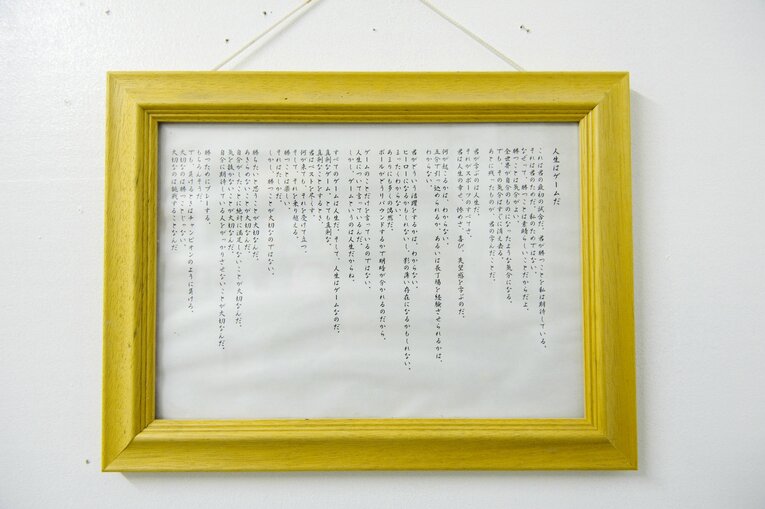 人生はゲームだ
これは君の最初の試合だ。君が勝つことを私は期待している。
それは君のためだ。私のためではない。
なぜって、勝つことは素晴らしいことだからだよ。
勝つことは気分がよい。
全世界が自分のものになったような気分になる。
でも、その気分はすぐに消え去る。
あとに残ったものが、君の学んだことだ。
君が学ぶのは人生だ。
それがスポーツのすべてさ。
君は人生の幸せ、惨めさ、喜び、失望感を学ぶのだ。
何が起こるかは、わからない。
五分で引っ込められるか、あるいは長丁場を経験させられるかは、
わからない。
君がどういう活躍をするかは、わからない。
ヒーローになるかもしれないし、影の薄い存在になるかもしれない。
まったくわからない。
あまりにも多くの偶然だ。
ボールがどうリバウンドするかで明暗が分かれるのだから。
ゲームのことだけを言っているのではない。
人生について言っているんだ。
しかし、ゲームというのは人生だからね。
すべてのゲームは人生だ。そして、人生はゲームなのだ。
真剣なゲーム。とても真剣な。
真剣なことをするとき、
君はベストを尽くす。
何が来ても、それを受けて立つ。
そして、それを乗り超える。
勝つことは楽しい。
それはたしかだ。
しかし、勝つことが大切なのではない。
勝ちたいと思うことが大切なんだ。
あきらめないことが大切なんだ。
自分がしたことに絶対に満足しないことが大切なんだ。
気を抜かないことが大切なんだ。
自分に期待している人をがっかりさせないことが大切なんだ。
勝つためにプレーする。
もちろんだ。
でも、負けるときはチャンピオンのように負ける。
大切なのは勝つことじゃない。
大切なのは挑戦することなんだ